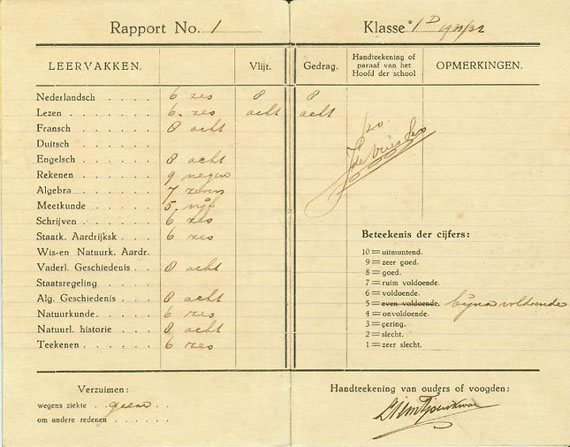 Rapport No. 1 Klasse 1D 1921/22
LEERVAKKEN. Vlijt. Gedrag. Handteekening of paraaf van het Hoofd der school OPMERKINGEN.
Nederlandsch 6 zes 8 8
Lezen 6. zes acht acht
Fransch 8 acht
Duitsch
Engelsch 8 acht
Rekenen 9 negen
Algebra 7 zeven
Meetkunde 5. vijf
Schrijven 6 zes
Staatk. Aardrijksk 6 zes
Wis-en Natuurk. Aardr.
Vaderl. Geschiedenis 8 acht
Staatsregeling
Alg. Geschiedenis 8 acht
Natuurkunde 6 zes
Natuurl. historie 8 acht
Teekenen 6 zes
Beteekenis der cijfers:
10 = uitmuntend.
9 = zeer goed.
8 = goed.
7 = ruim voldoende.
6 = voldoende.
5 = even voldoende. bijna voldoende
4 = onvoldoende.
3 = gering.
2 = slecht.
1 = zeer slecht.
Verzuimen:
wegens ziekte geen
om andere redenen
Handteekening van ouders of voogden: